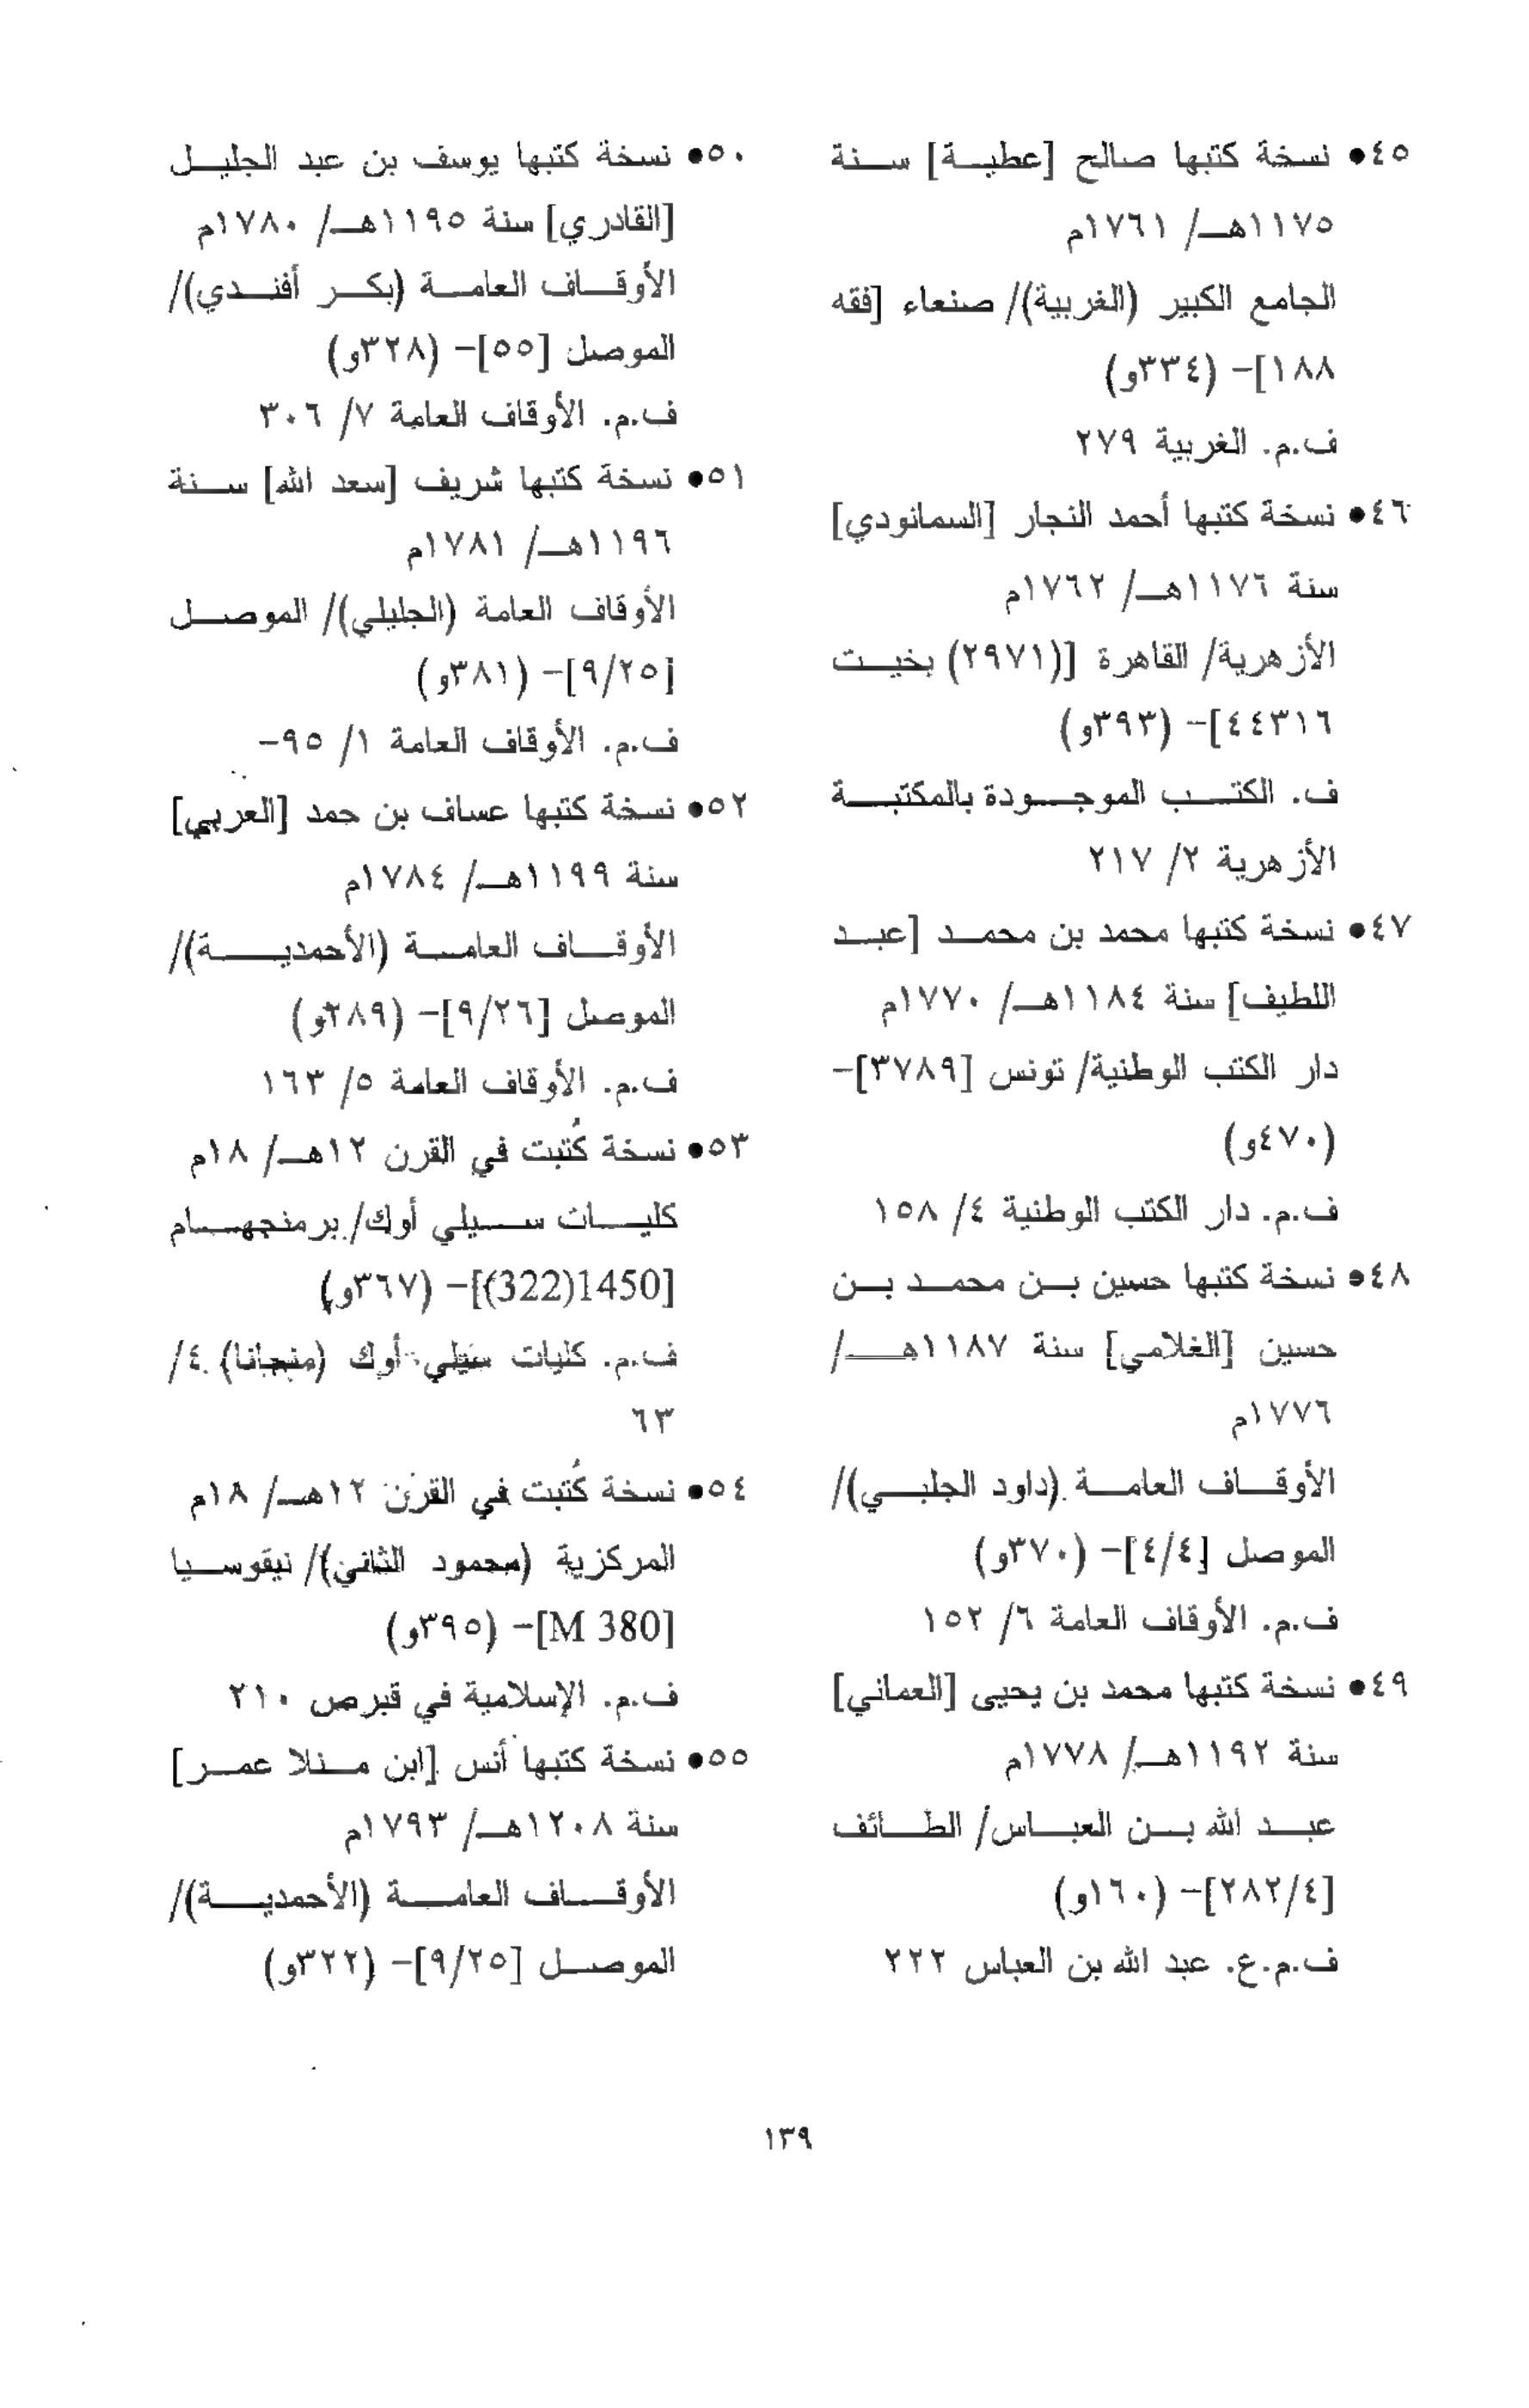 ٤٥● نسخة كتبها صالح [عطية] سنة
١١٧٥هـ/ ١٧٦١م
الجامع الكبير (الغربية)/ صنعاء [فقه
١٨٨]- (٣٣٤و)
ف.م. الغربية ٢٧٩
٤٦● نسخة كتبها أحمد النجار [السمانودي]
سنة ١١٧٦هـ/ ١٧٦٢م
الأزهرية/ القاهرة [(٢٩٧١) بخيت
٤٤٣١٦]- (٣٩٣و)
ف. الكتب الموجودة بالمكتبة
الأزهرية ٢/ ٢١٧
٤٧● نسخة كتبها محمد بن محمد [عبد
اللطيف] سنة ١١٨٤هـ/ ١٧٧٠م
دار الكتب الوطنية/ تونس [٣٧٨٩]-
(٤٧٠و)
ف.م. دار الكتب الوطنية ٤/ ١٥٨
٤٨● نسخة كتبها حسين بن محمد بن
حسين [الغلامي] سنة ١١٨٧هـ/
١٧٧٦م
الأوقاف العامة (داود الجلبي)/
الموصل [٤/٤]- (٣٧٠و)
ف.م. الأوقاف العامة ٦/ ١٥٢
٤٩● نسخة كتبها محمد بن يحيى [العماني]
سنة ١١٩٢هـ/ ١٧٧٨م
عبد الله بن العباس/ الطائف
[٢٨٢/٤]- (١٦٠و)
ف.م.ع. عبد الله بن العباس ٢٢٢
٥٠● نسخة كتبها يوسف بن عبد الجليل
[القادري] سنة ١١٩٥هـ/ ١٧٨٠م
الأوقاف العامة (بكر أفندي)/
الموصل [٥٥]- (٣٢٨و)
ف.م. الأوقاف العامة ٧/ ٣٠٦
٥١● نسخة كتبها شريف [سعد الله] سنة
١١٩٦هـ/ ١٧٨١م
الأوقاف العامة (الجليلي)/ الموصل
[٩/٢٥]- (٣٨١و)
ف.م. الأوقاف العامة ١/ ٩٥-
٥٢● نسخة كتبها عساف بن حمد [العربي]
سنة ١١٩٩هـ/ ١٧٨٤م
الأوقاف العامة (الأحمدية)/
الموصل [٩/٢٦]- (٣٨٩و)
ف.م. الأوقاف العامة ٥/ ١٦٣
٥٣● نسخة كُتبت في القرن ١٢هـ/ ١٨م
كليات سيلي أوك/ برمنجهام
[1450(322)]- (٣٦٧و)
ف.م. كليات سيلي أوك (منجانا) ٤/
٦٣
٥٤● نسخة كُتبت في القرن ١٢هـ/ ١٨م
المركزية (محمود الثاني)/ نيقوسيا
[M 380]- (٣٩٥و)
ف.م. الإسلامية في قبرص ٢١٠
٥٥● نسخة كتبها أنس [ابن منلا عمر]
سنة ١٢٠٨هـ/ ١٧٩٣م
الأوقاف العامة (الأحمدية)/
الموصل [٩/٢٥]- (٣٢٢و)
١٣٩